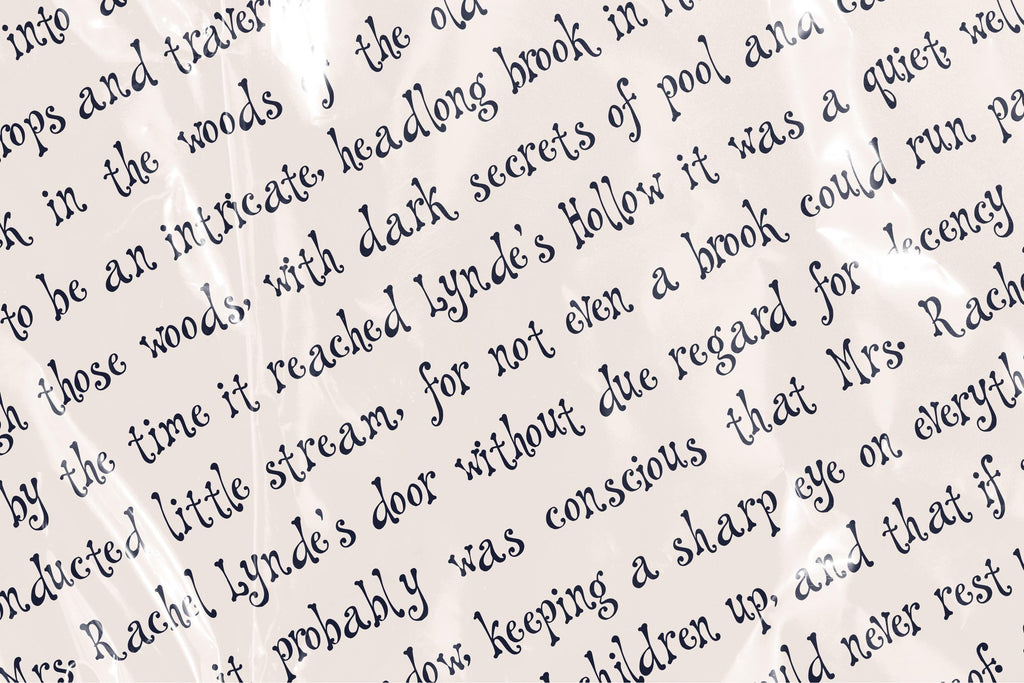 into a
rops and travers
k in the woods of the old
to be an intricate, headlong brook in
gh those woods, with dark secrets of pool and
by the time it reached Lynde's Hollow it was a quiet, well
onducted little stream, for not even a brook could run pa
Mrs. Rachel Lynde's door without due regard for decency
it probably was conscious that Mrs. Rache
dow, keeping a sharp eye on everyth
children up, and that if
uld never rest
of.